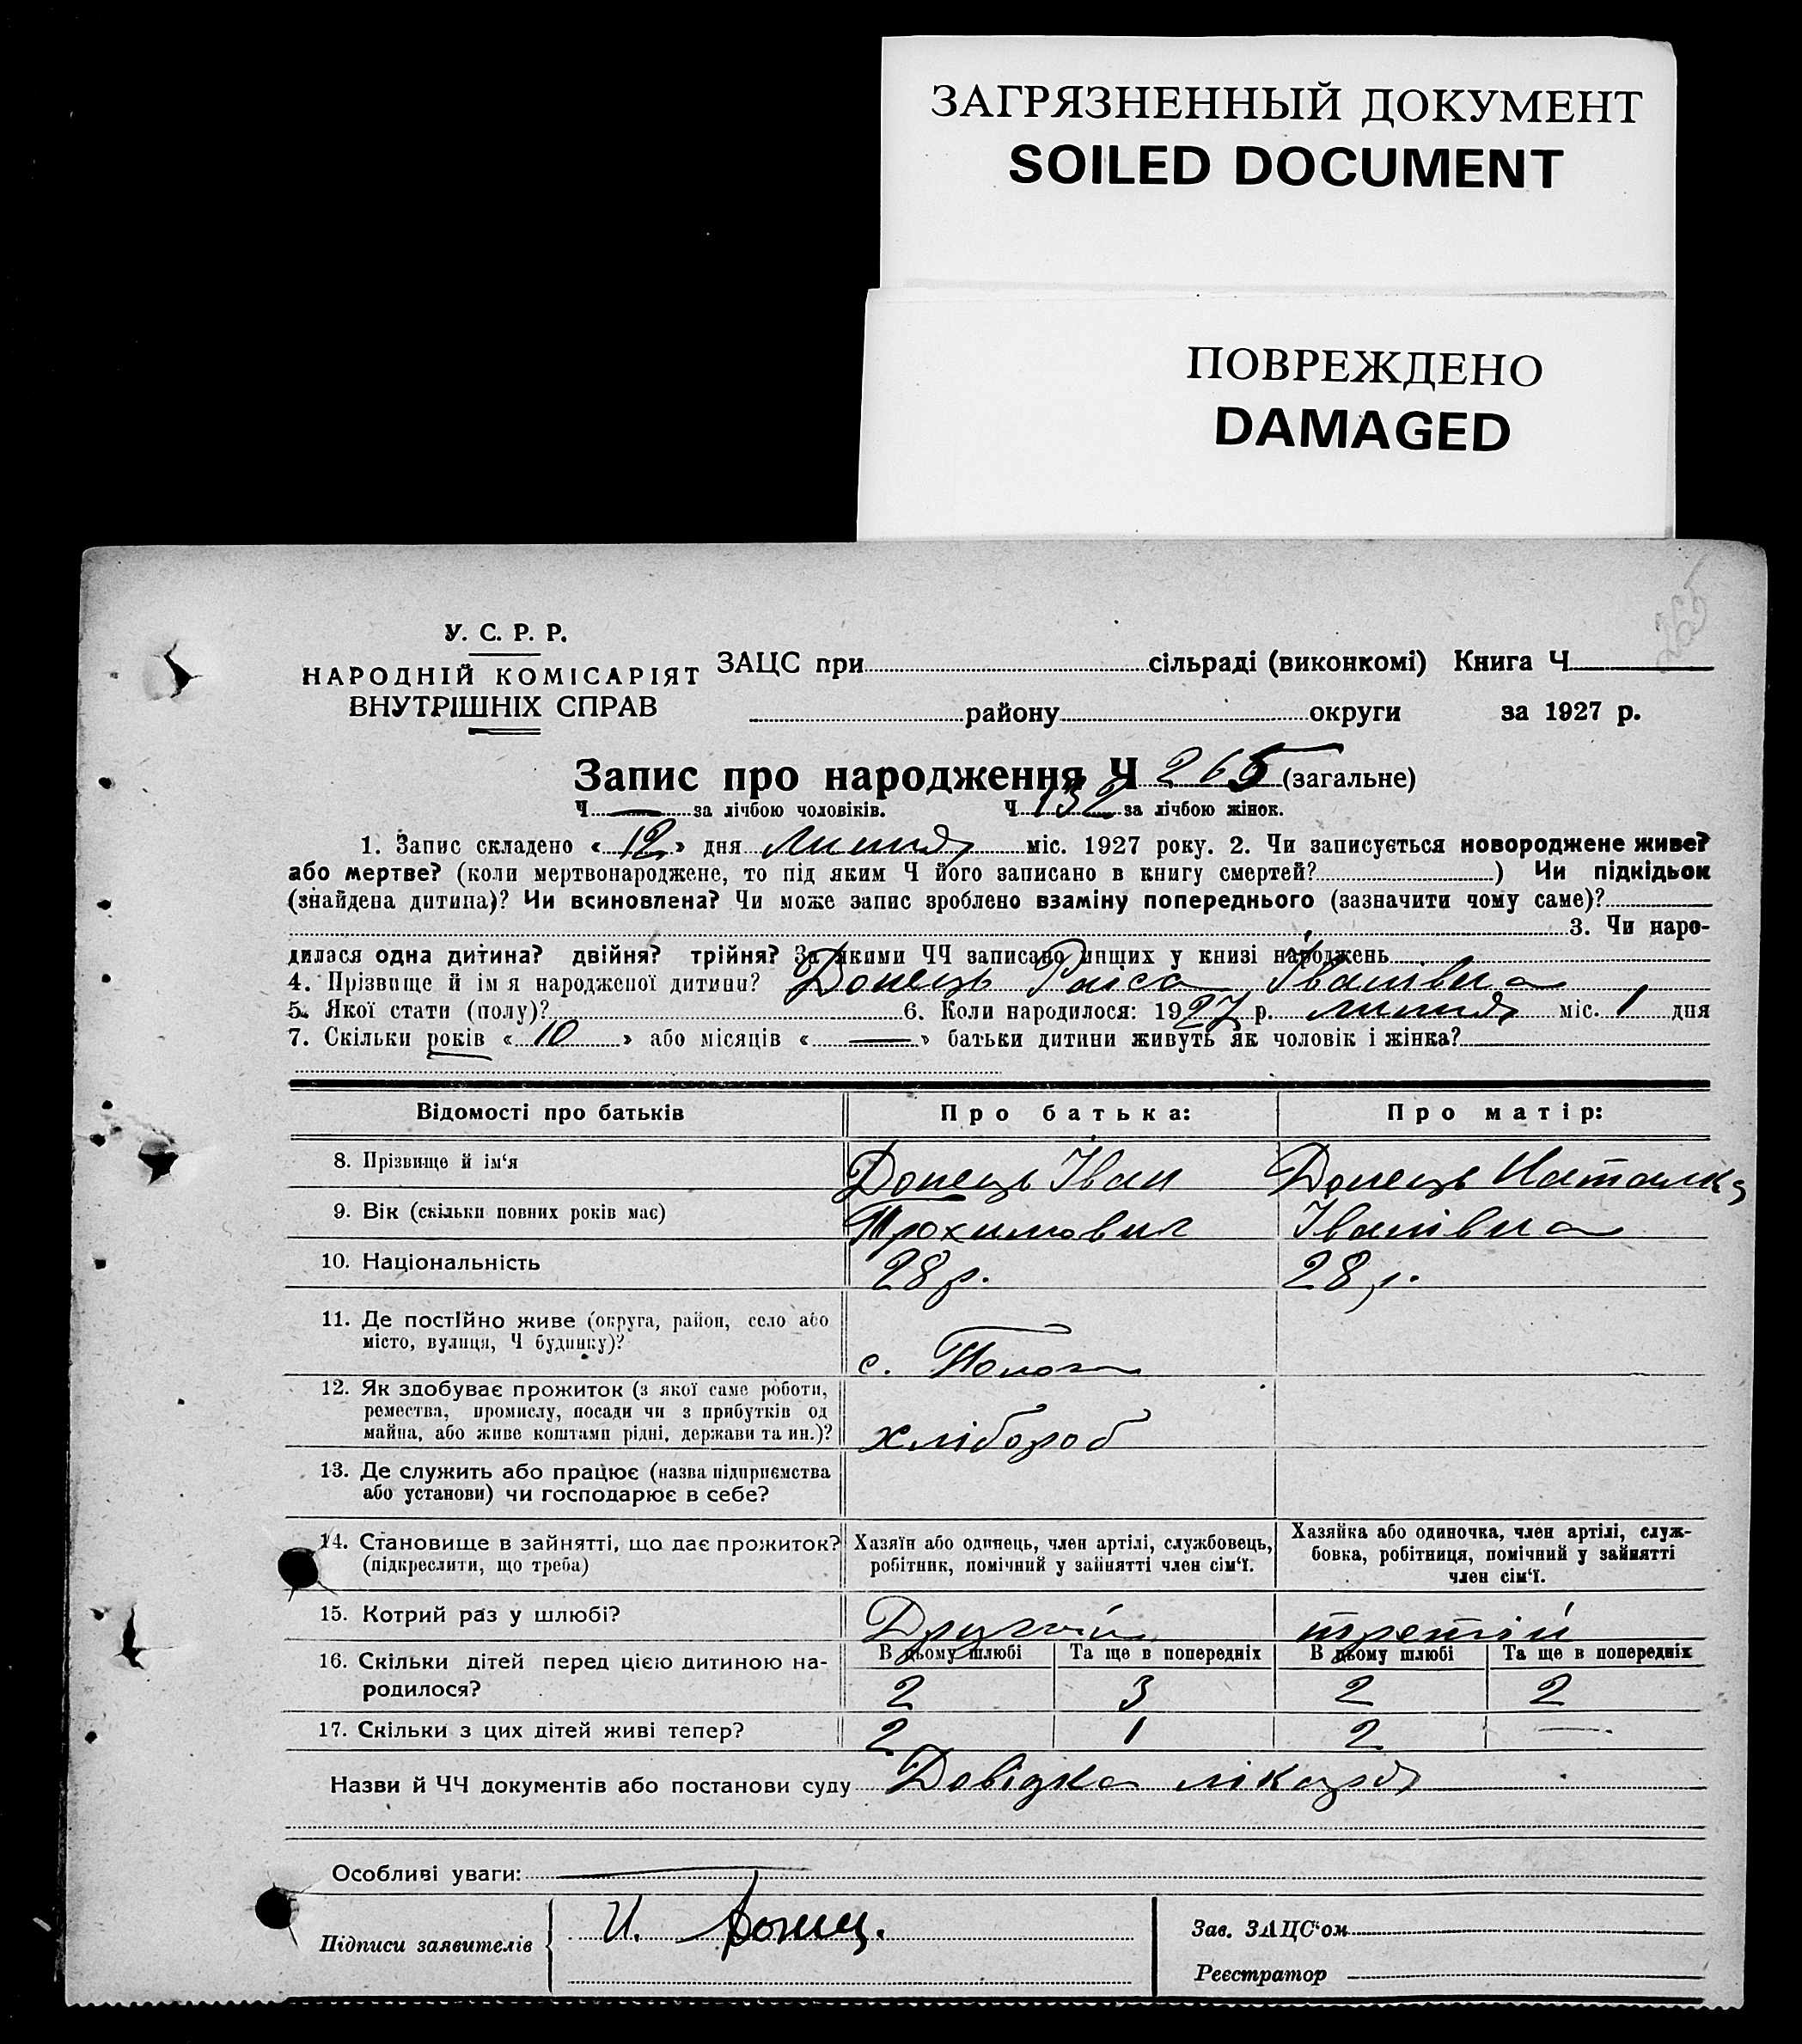 ЗАГРЯЗНЕННЫЙ ДОКУМЕНТ
SOILED DOCUMENT
ПОВРЕЖДЕНО
DAMAGED
265
У. С. Р. Р.
НАРОДНІЙ КОМІСАРІЯТ
ВНУТРІШНІХ СПРАВ
ЗАЦС при сільраді (виконкомі) Книга Ч
району округи за 1927 р.
Запис про народження Ч 265 (загальне)
Ч — за лічбою чоловіків. Ч 132 за лічбою жінок.
1. Запис складено « 12 » дня липня міс. 1927 року. 2. Чи записується новороджене живе?
або мертве? (коли мертвонароджене, то під яким Ч його записано в книгу смертей? ) Чи підкідьок
(знайдена дитина)? Чи всиновлена? Чи може запис зроблено взаміну попереднього (зазначити чому саме)?
3. Чи наро-
дилася одна дитина? двійня? трійня? За якими ЧЧ записано инших у книзі народжень
4. Прізвище й ім я народженої дитини? Донець Раїса Іванівна
5. Якої стати (полу)? 6. Коли народилося: 1927 р. липня міс. 1 дня
7. Скільки років « 10 » або місяців « — » батьки дитини живуть як чоловік і жінка?
Відомості про батьків Про батька: Про матір:
8. Прізвище й ім'я Донець Іван Донець Наталка
9. Вік (скільки повних років має) Трохимович Іванівна
10. Національність 28 р. 28 р.
11. Де постійно живе (округа, район, село або
місто, вулиця, Ч будинку)? с.
12. Як здобуває прожиток (з якої саме роботи,
ремества, промислу, посади чи з прибутків од
майна, або живе коштами рідні, держави та ин.)? хлібороб
13. Де служить або працює (назва підприємства
або установи) чи господарює в себе?
14. Становище в зайнятті, що дає прожиток?
(підкреслити, що треба)
Хазяїн або одинець, член артілі, службовець,
робітник, помічний у зайнятті член сім'ї.
Хазяйка або одиночка, член артілі, служ-
бовка, робітниця, помічний у зайнятті
член сім'ї.
15. Котрий раз у шлюбі? Другий третій
В цьому шлюбі Та ще в попередніх В цьому шлюбі Та ще в попередніх
16. Скільки дітей перед цією дитиною на-
родилося? 2 3 2 2
17. Скільки з цих дітей живі тепер? 2 1 2 —
Назви й ЧЧ документів або постанови суду Довідка лікаря
Особливі уваги:
Підписи заявителів И. Донец.
Зав. ЗАЦС'ом
Реєстратор